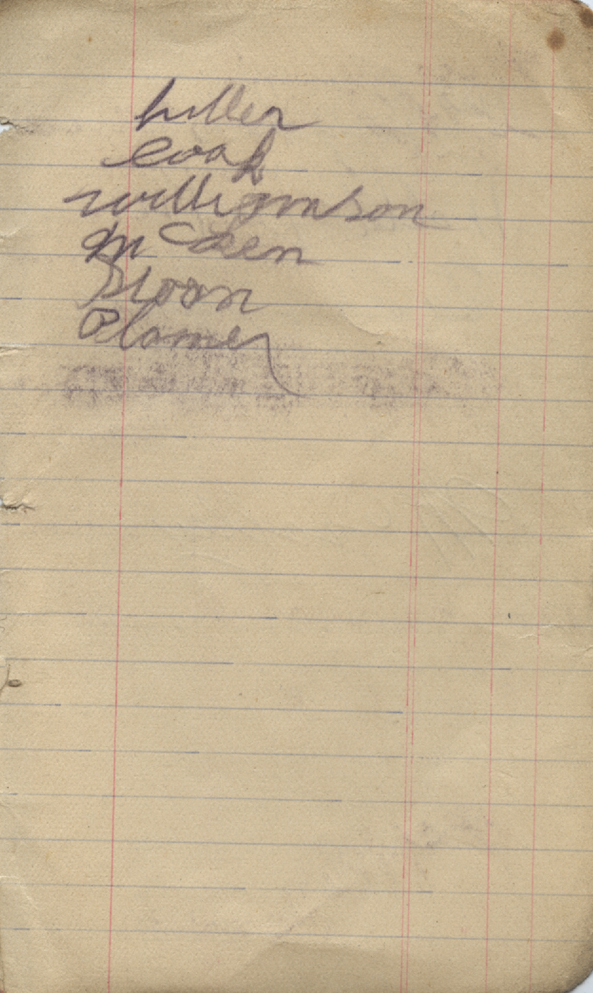 hiller
Cook
Williamson
Mc Cken
Sloan
Plamer